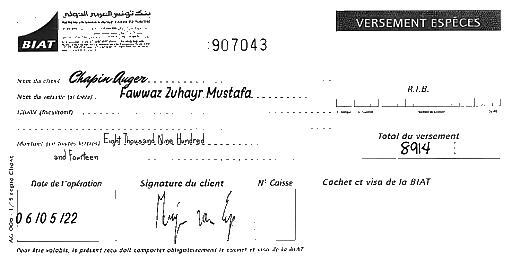 بنك تونس العربي الدولي
BIAT
907043
VERSEMENT ESPÈCES
Nom du client Chapin Auger
Nom du verseur (si tiers) Fawwaz Zuhayr Mustafa
R.I.B.
Montant (en toutes lettres) Eight Thousand Nine Hundred
and Fourteen
Total du versement
8914
Date de l'opération
Signature du client
N° Caisse
Cachet et visa de la BIAT
06/05/22
Pour être valable, le présent reçu doit comporter obligatoirement le cachet et visa de la BIAT